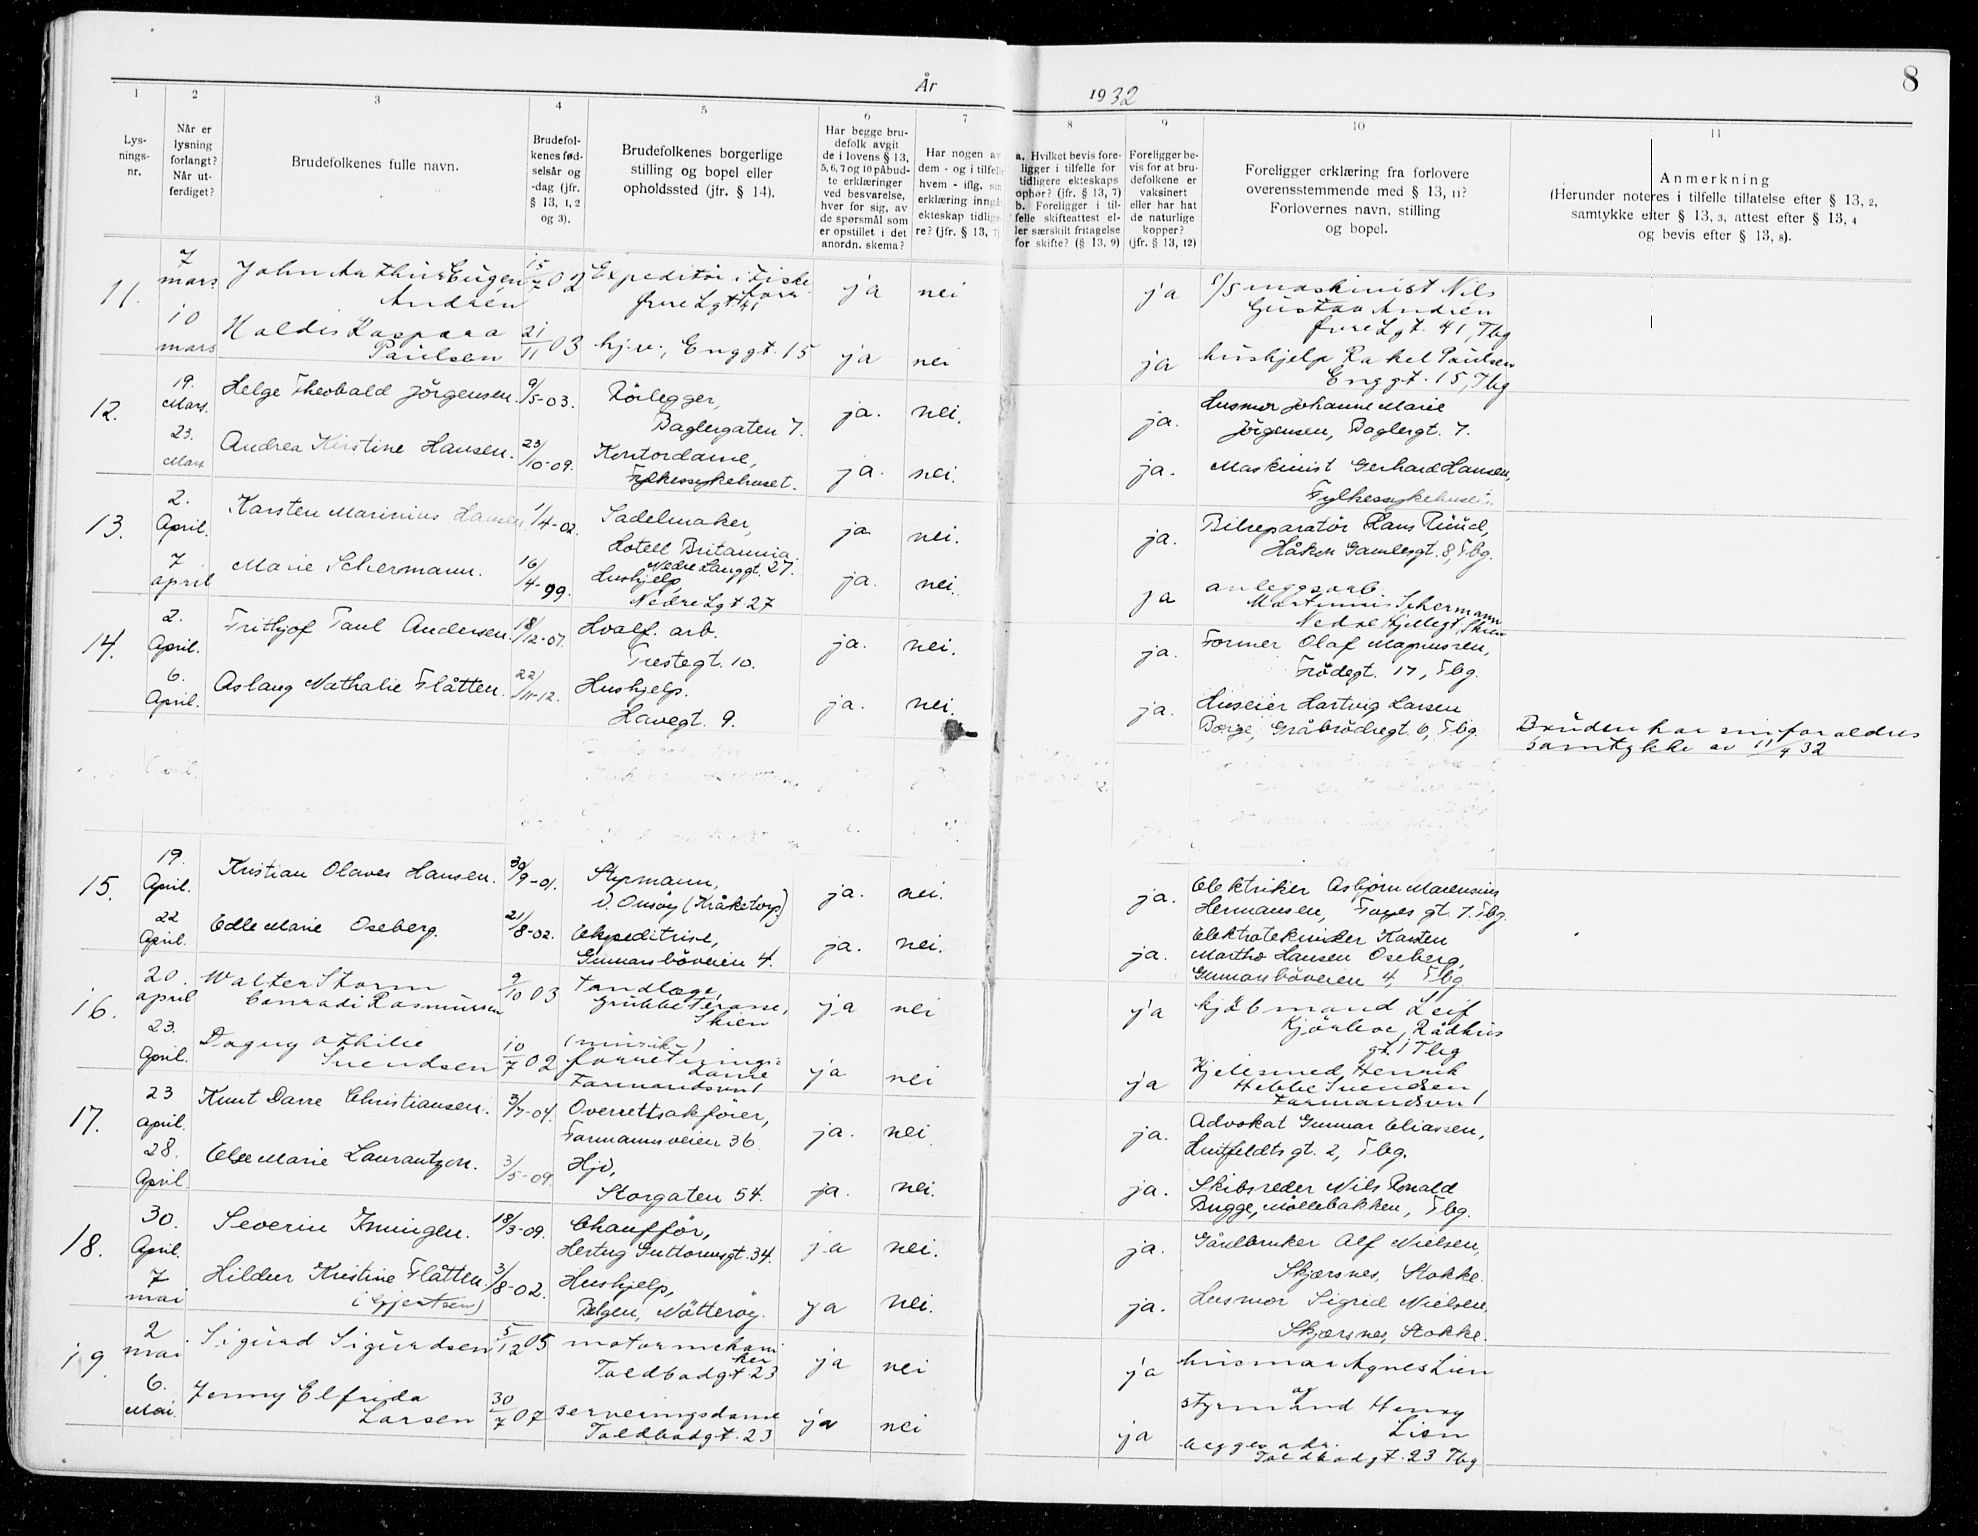 År 1932
8
1 2 3 4 5 6 7 8 9 10 11
Lys-
nings-
nr.
Når er
lysning
forlangt?
Når ut-
ferdiget?
Brudefolkenes fulle navn.
Brudefol-
kenes fød-
selsår og
-dag (jfr.
§ 13, 1, 2
og 3).
Brudefolkenes borgerlige
stilling og bopel eller
opholdssted (jfr. § 14).
Har begge bru-
defolk avgit
de i lovens § 13,
5, 6, 7 og 10 påbud-
te erklæringer
ved besvarelse,
hver for sig, av
de spørsmål som
er opstillet i det
anordn. skema?
Har nogen av
dem - og i tilfelle
hvem - iflg. sin
erklæring inngå
ekteskap tidlige-
re? (jfr. § 13, 7)
a. Hvilket bevis fore-
ligger i tilfelle for
tidligere ekteskaps
ophør? (jfr. § 13, 7)
b. Foreligger i til-
felle skifteattest el-
ler særskilt fritagelse
for skifte? (§ 13, 9)
Foreligger be-
vis for at bru-
defolkene er
vaksinert
eller har hat
de naturlige
kopper?
(jfr. § 13, 12)
Foreligger erklæring fra forlovere
overensstemmende med § 13, 11?
Forlovernes navn, stilling
og bopel.
Anmerkning
(Herunder noteres i tilfelle tillatelse efter § 13, 2,
samtykke efter § 13, 3, attest efter § 13, 4
og bevis efter § 13, 8).
11. 7 mars John Arthur Eugen Andrén 15/7 02 Expeditør i Fiske
øvre Lgt. 41 ja nei ja maskinist Nils
Gustav Andrén
øvre Lgt. 41, Tbg
10 mars Haldis Kaspara Paulsen 21/11 03 hj.v., Enggt. 15 ja nei ja hushjelp Rakel Paulsen
Enggt. 15, Tbg
12. 19. Mars. Helge Theobald Jörgensen. 9/5-03. Rörlegger,
Baglergaten 7. ja. nei. ja. Husmor Johanne Marie
Jörgensen, Baglergt. 7.
23. Mars Andrea Kirstine Hansen. 23/10-09. Kontordame,
Fylkessykehuset. ja. nei. ja. Maskinist Gerhard Hansen,
Fylkessykehuset.
13. 2. April. Karsten Marinius Hansen 1/4-02. Sadelmaker,
Hotell Britannia.
Nedre Langgt. 27. ja. nei. ja. Bilreparatör Hans Ruud,
Håken Gamlesgt. 8, Tbg.
7 april Marie Schermann. 16/4-99. Hushjelp,
Nedre Lgt 27 ja. nei. ja anleggsarb.
Martinius Schermann
Nedre Hjellegt, Skien
14. 2. April. Frithjof Paul Andersen. 18/12-07. Hvalf. arb.
Trestegt. 10. ja. nei. ja. Former Olaf Magnussen,
Frödegt. 17, Tbg.
6. April. Aslaug Nathalie Flåtten. 22/11-12. Hushjelp.
Havegt. 9. ja. nei. ja. Huseier Hartvig Larsen
Borge, Gråbrödregt. 6, Tbg.
Bruden har sin foraldres
samtykke av 11/4 32
15. 19. April. Kristian Olaves Hansen. 30/9-01. Styrmann,
V. Onsöy (Kråketorp.) ja. nei. ja. Elektriker Asbjörn Marensius
Hermansen, Foyns gt. 7. Tbg.
22 April. Edle Marie Oseberg. 21/8-02. Ekspeditrise,
Gunnarsböveien 4. ja. nei. ja. Elektrotekniker Karsten
Marthe Hansen Oseberg,
Gunnarsböveien 4, Tbg
16. 20. april Walter Storm
Conradi Rasmussen 9/10 03 Tandlæge,
Grubbe Terasse,
Skien ja nei ja kjöbmand Leif
Kjörboe, Rådhus
gt. 1 Tbg
23. April. Dagny Othilie
Svendsen 10/7 02 (musik)
forretnings-
dame
Farmandsvn 1 ja nei ja Gjellsmed, Henrik
Hebbe Svendsen
Farmandsvn 1
17. 23 april. Knut Darre Christiansen. 3/7-04. Overrettsakförer,
Farmannsveien 36 ja. nei. ja. Advokat Gunnar Eliassen,
Huitfeldts gt. 2, Tbg.
28. April Else Marie Laurantzon. 3/5-09. Hjv,
Storgaten 54. ja. nei. ja. Skibsreder Nils Ronald
Bugge, Møllebakken, Tbg.
18. 30. April. Severin Inningen. 18/3-09. Chaufför,
Hertug Guttormsgt. 34. ja nei. ja. Gårdbruker Alf Nielsen,
Skjærsnes, Stokke.
7 mai Hildur Kristine Flåtten.
(Gjertsen) 3/8-02. Hushjelp,
Bolgen, Nötteröy. ja nei. ja. Husmor Sigrid Nielsen,
Skjærsnes, Stokke.
19. 2 mai. Sigurd Sigurdsen 5/12 05 motormekani
ker
Toldbodgt 23 ja nei ja husmor Agnes Lien
og
6. Mai. Jenny Elfrida
Larsen 30/7 07 serveringsdame
Toldbodgt. 23 ja nei ja styrmand Henry
Lien
begges adr.
Toldbodgt. 23 Tbg